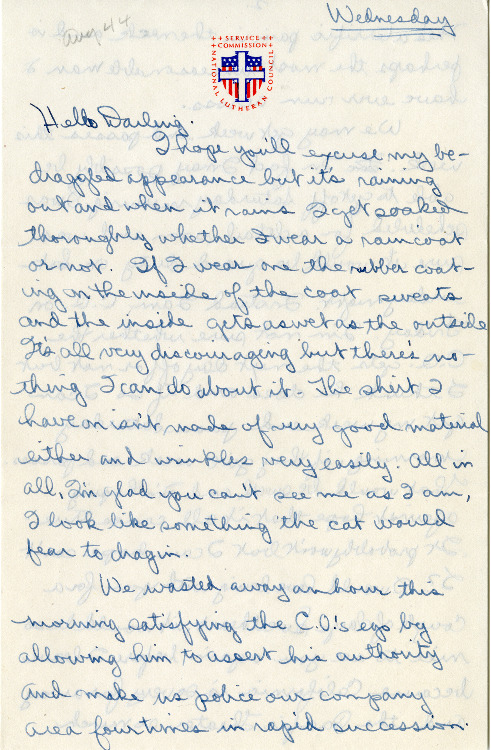 Wednesday
Aug 44
SERVICE
COMMISSION
NATIONAL LUTHERAN COUNCIL
Hello Darling.
I hope you'll excuse my be-
draggled appearance but it's raining
out and when it rains I get soaked
thoroughly whether I wear a raincoat
or not. If I wear one the rubber coat-
ing on the inside of the coat sweats
and the inside gets as wet as the outside
It's all very discouraging but there's no-
thing I can do about it. The shirt I
have on isn't made of very good material
either and wrinkles very easily. All in
all, I'm glad you can't see me as I am,
I look like something the cat would
fear to drag in.
We wasted away an hour this
morning satisfying the C.O.'s ego by
allowing him to assert his authority
and make us police our company
area four times in rapid succession.